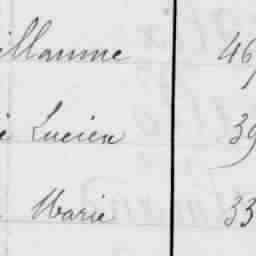 illaume 46
é Lucien 39
Marie 33